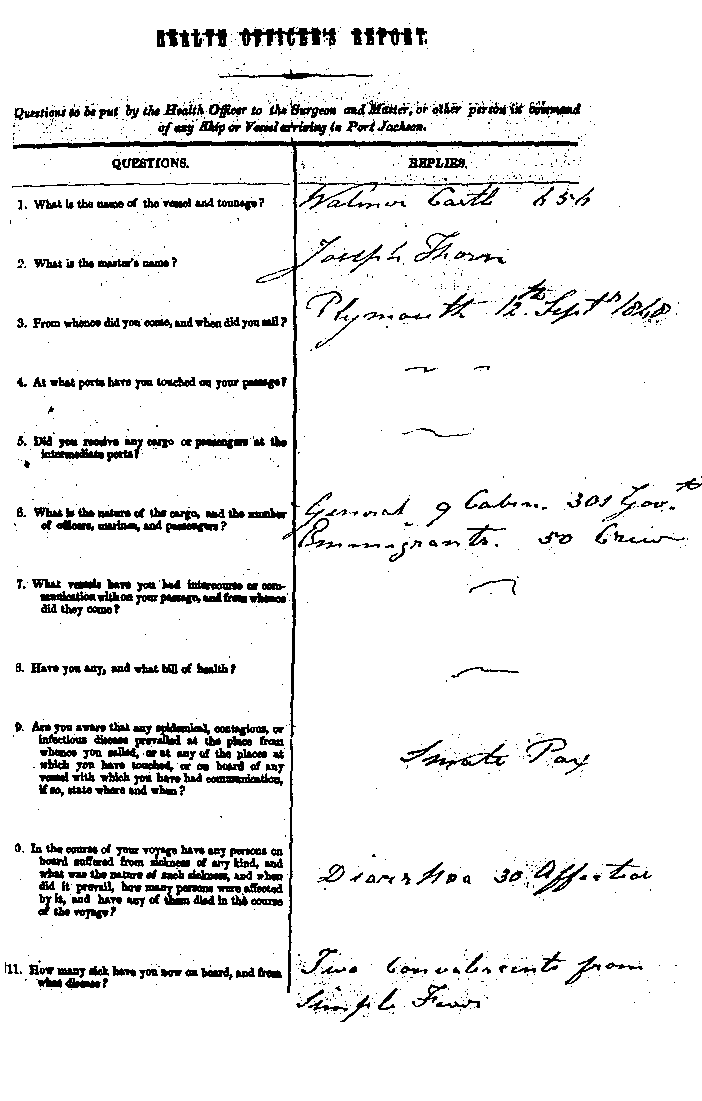 HEALTH OFFICER'S REPORT.
Questions to be put by the Health Officer to the Surgeon and Master, or other person in command
of any Ship or Vessel arriving in Port Jackson.
QUESTIONS.
REPLIES.
1. What is the name of the vessel and tonnage?
Walmer Castle 656
2. What is the master's name?
Joseph Thorn
3. From whence did you come, and when did you sail?
Plymouth 12th Septr 1848
4. At what ports have you touched on your passage?
5. Did you receive any cargo or passengers at the
intermediate ports?
6. What is the nature of the cargo, and the number
of officers, marines, and passengers?
General 9 Cabin. 301 Govt
Emmigrants. 50 Crew
7. What vessels have you had intercourse or com-
munication with on your passage, and from whence
did they come?
8. Have you any, and what bill of health?
9. Are you aware that any epidemical, contagious, or
infectious disease prevailed at the place from
whence you sailed, or at any of the places at
which you have touched, or on board of any
vessel with which you have had communication,
if so, state where and when?
Pox
0. In the course of your voyage have any persons on
board suffered from sickness of any kind, and
what was the nature of such sickness, and when
did it prevail, how many persons were affected
by it, and have any of them died in the course
of the voyage?
Diarrhoea 30 Affected
11. How many sick have you now on board, and from
what disease?
Two Convalescents from
Simple Fever